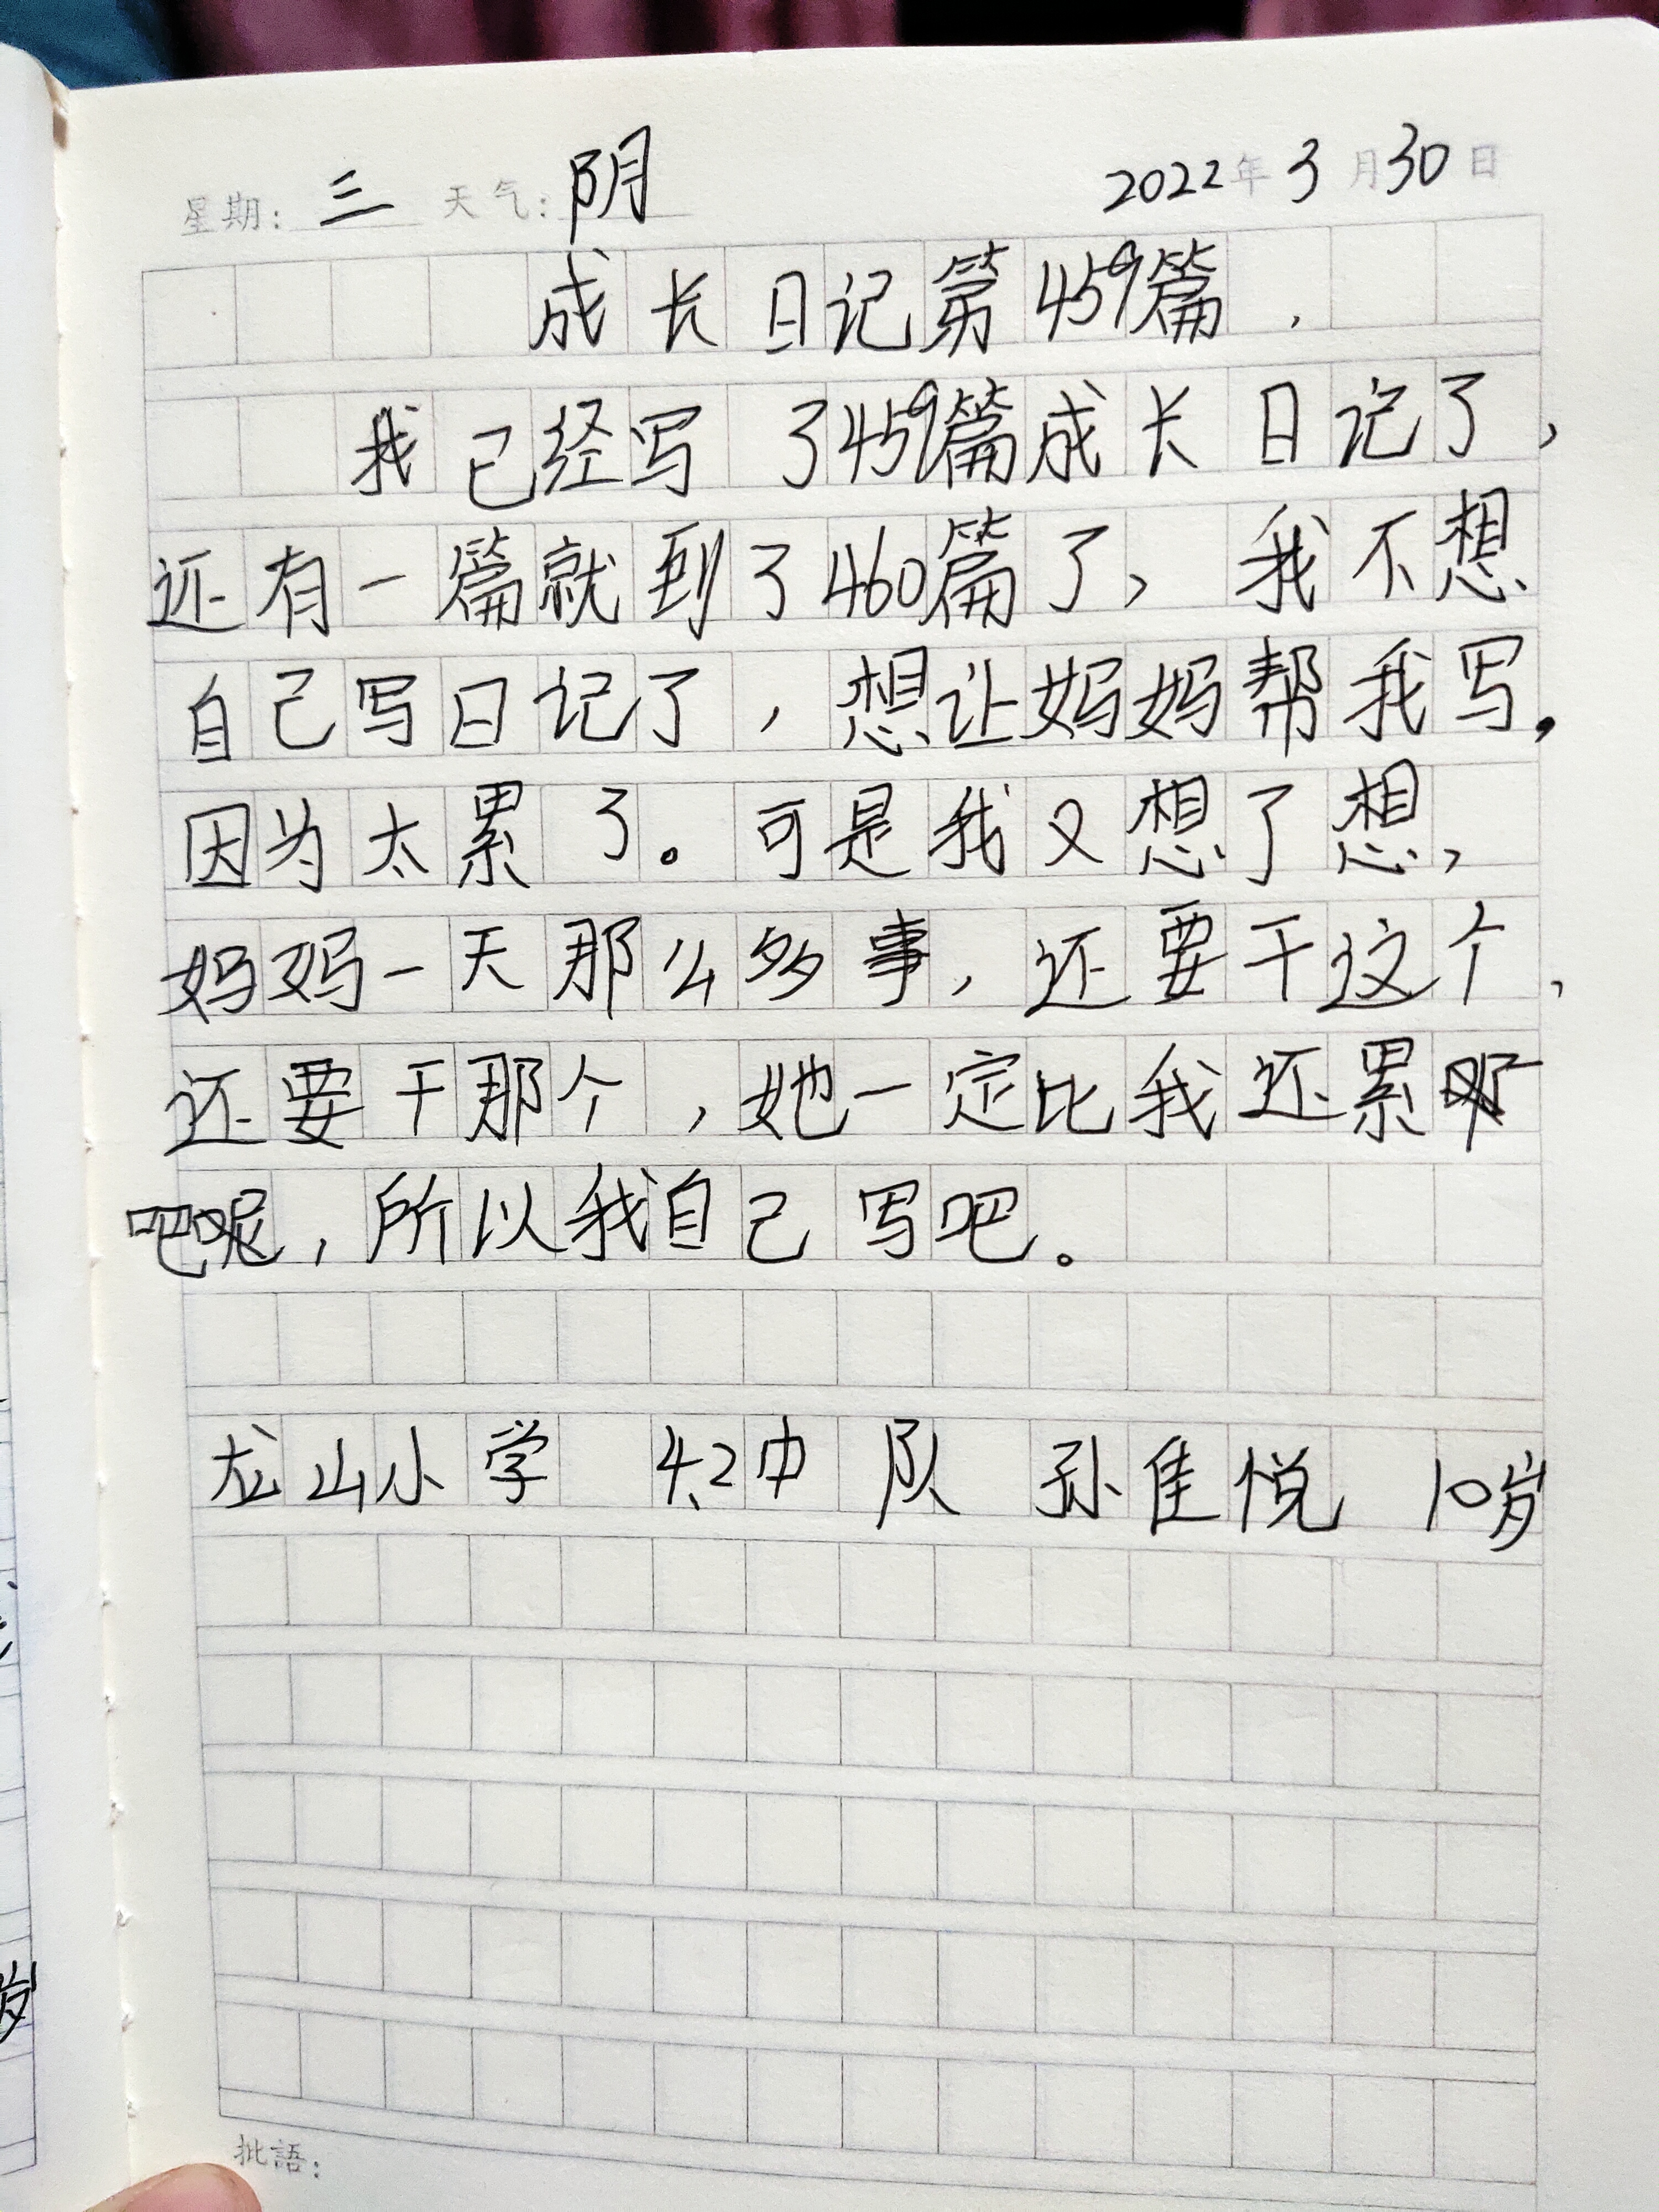 星期: 三 天气: 阴 2022年3月30日
成长日记第459篇.
我已经写了459篇成长日记了,
还有一篇就到了460篇了,我不想
自己写日记了,想让妈妈帮我写.
因为太累了。可是我又想了想,
妈妈一天那么多事,还要干这个,
还要干那个,她一定比我还累
吧呢,所以我自己写吧。
龙山小学 4.2中队 孙佳悦 10岁
批語:
岁